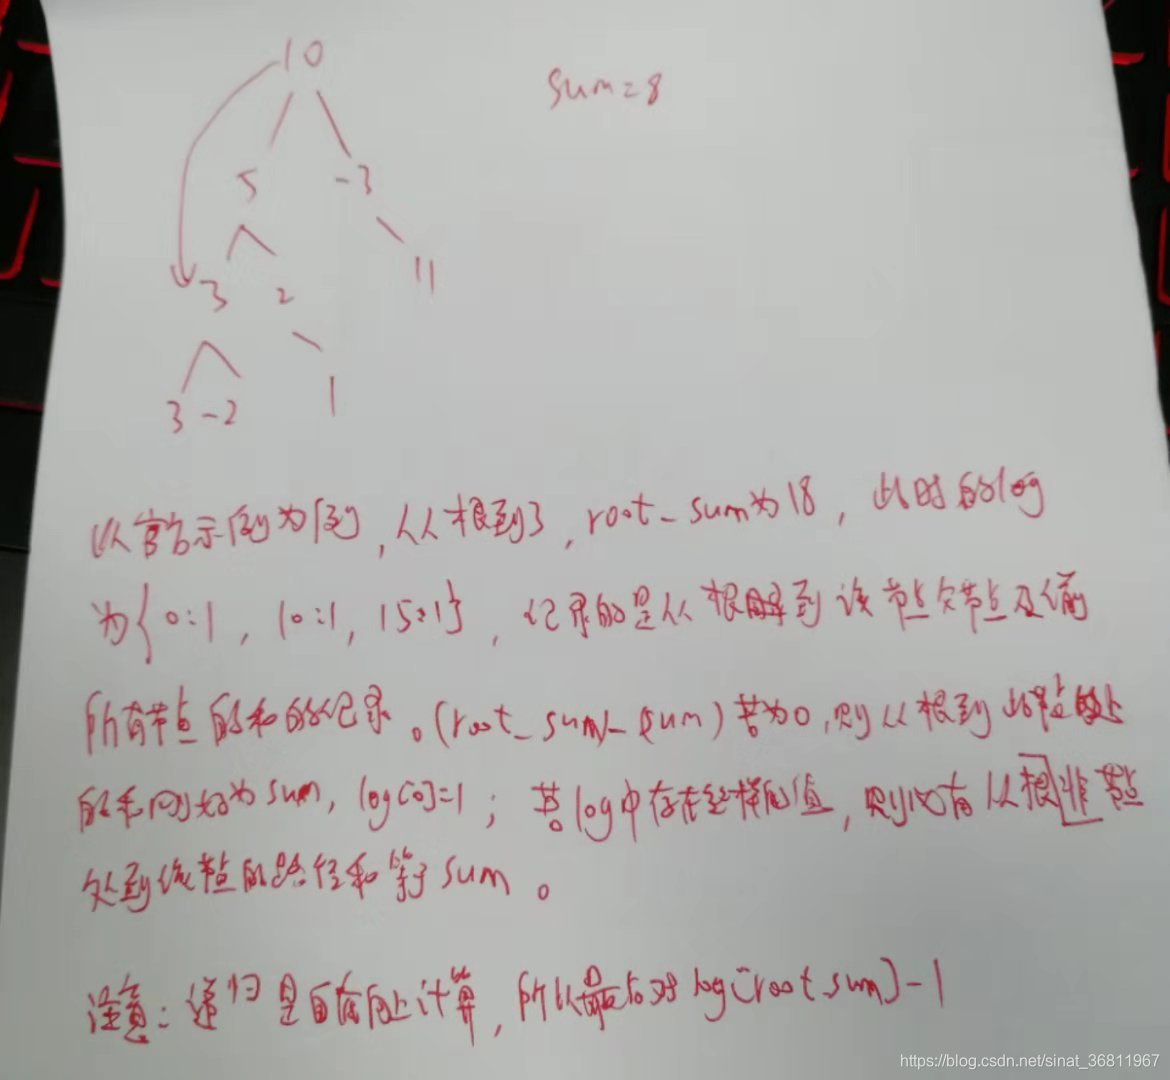 10
sum=8
5 -3
3 2 11
3 -2 1
以官方示例为例,从根到3,root_sum为18,此时的log
为{0:1, 10:1, 15:1},记录的是从根到该节点及前
所有节点的和的记录。(root_sum-sum)若为0,则从根到此节点处
的和刚好为sum,log[0]=1;若log中存在这样的值,则必有从根非节点
处到该节点的路径和等于sum。
注意:递归是自底向上计算,所以最后对log[root_sum]-1
https://blog.csdn.net/sinat_36811967